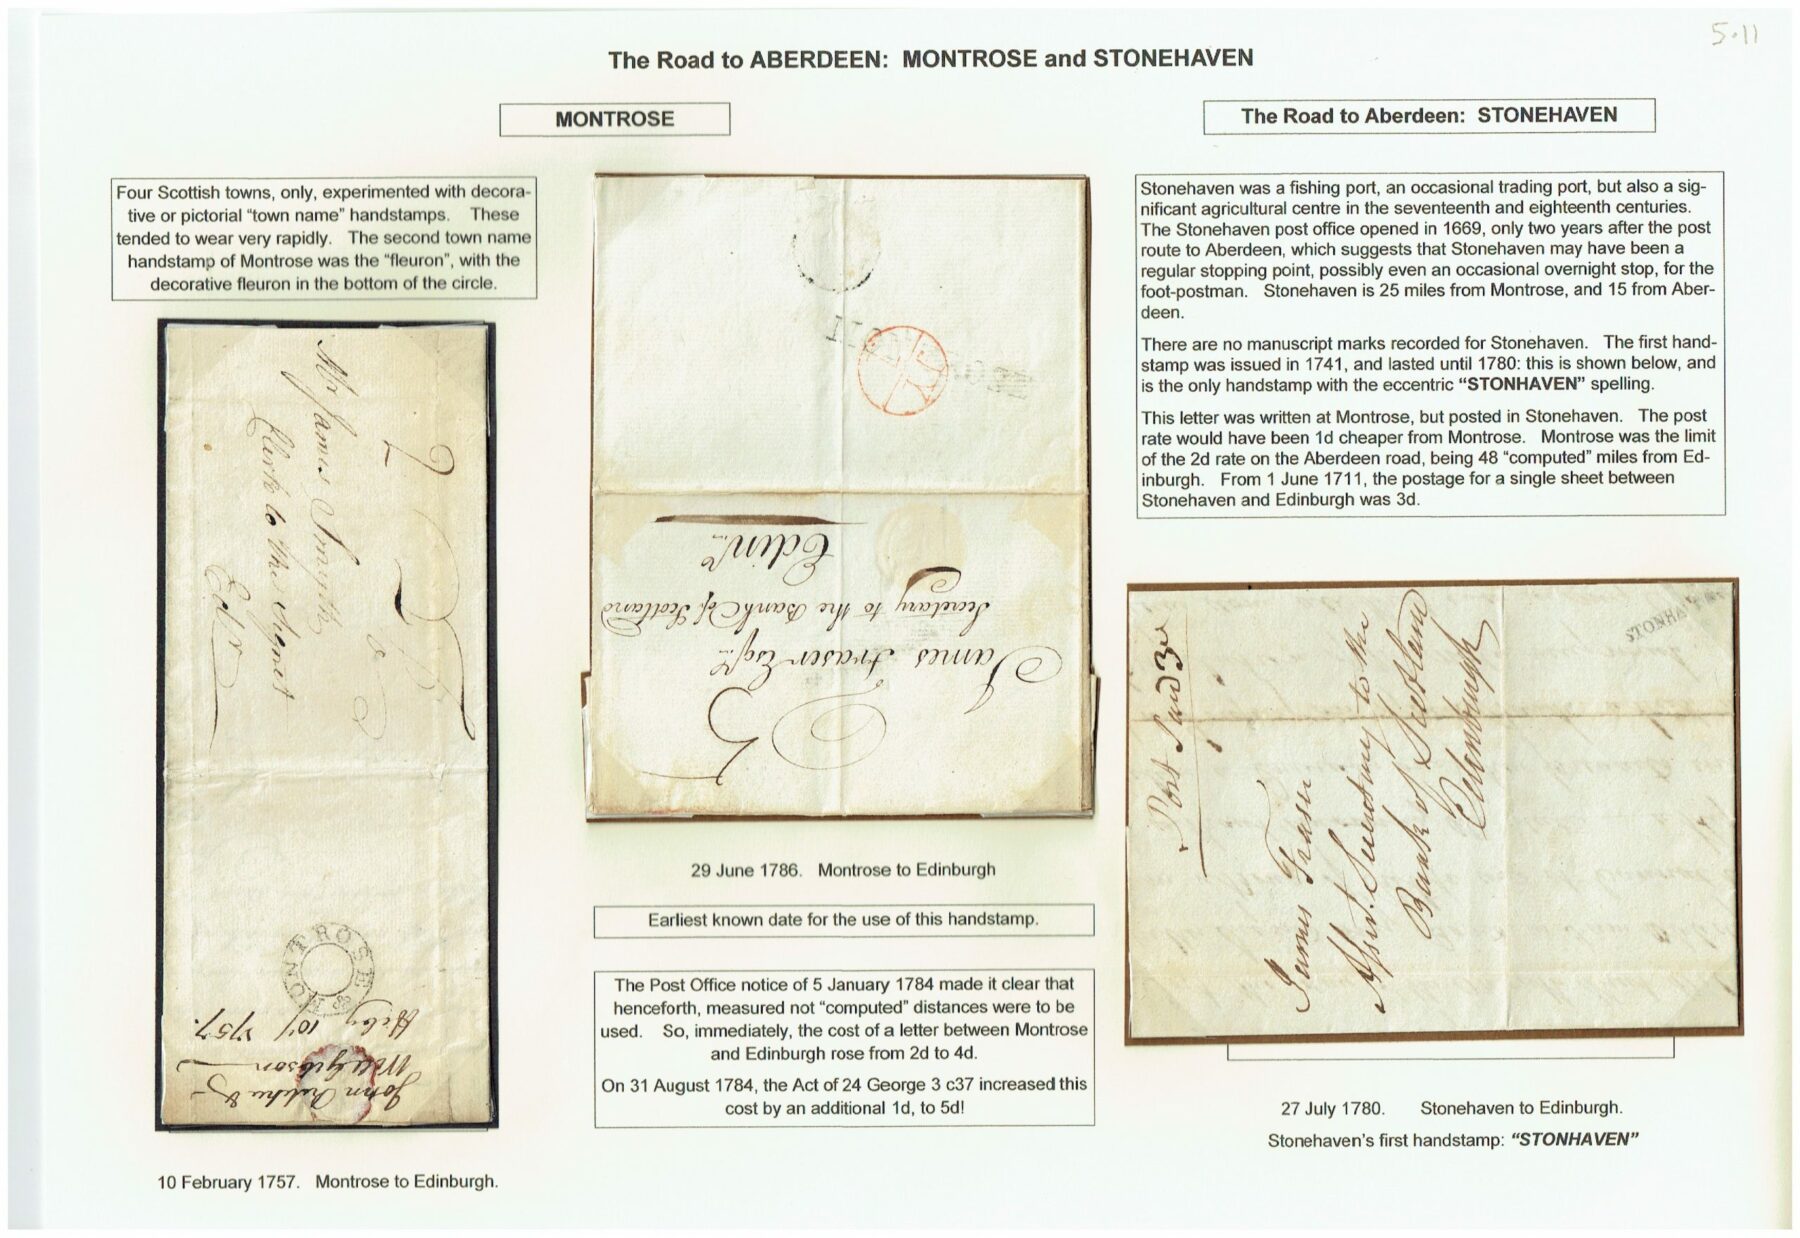 5·11
The Road to ABERDEEN: MONTROSE and STONEHAVEN
MONTROSE
Four Scottish towns, only, experimented with decora-
tive or pictorial “town name” handstamps. These
tended to wear very rapidly. The second town name
handstamp of Montrose was the “fleuron”, with the
decorative fleuron in the bottom of the circle.
Mr James Smyth
Clerk to the Signet
Edr
2
MONTROSE
Feby 10th 1757.
10 February 1757. Montrose to Edinburgh.
James Fraser Esqr
Secretary to the Bank of Scotland
Edinr
5
29 June 1786. Montrose to Edinburgh
Earliest known date for the use of this handstamp.
The Post Office notice of 5 January 1784 made it clear that
henceforth, measured not “computed” distances were to be
used. So, immediately, the cost of a letter between Montrose
and Edinburgh rose from 2d to 4d.
On 31 August 1784, the Act of 24 George 3 c37 increased this
cost by an additional 1d, to 5d!
The Road to Aberdeen: STONEHAVEN
Stonehaven was a fishing port, an occasional trading port, but also a sig-
nificant agricultural centre in the seventeenth and eighteenth centuries.
The Stonehaven post office opened in 1669, only two years after the post
route to Aberdeen, which suggests that Stonehaven may have been a
regular stopping point, possibly even an occasional overnight stop, for the
foot-postman. Stonehaven is 25 miles from Montrose, and 15 from Aber-
deen.
There are no manuscript marks recorded for Stonehaven. The first hand-
stamp was issued in 1741, and lasted until 1780: this is shown below, and
is the only handstamp with the eccentric “STONHAVEN” spelling.
This letter was written at Montrose, but posted in Stonehaven. The post
rate would have been 1d cheaper from Montrose. Montrose was the limit
of the 2d rate on the Aberdeen road, being 48 “computed” miles from Ed-
inburgh. From 1 June 1711, the postage for a single sheet between
Stonehaven and Edinburgh was 3d.
STONHAV
Post
James Fraser
Secretary to the
Bank of Scotland
Edenburgh
27 July 1780. Stonehaven to Edinburgh.
Stonehaven’s first handstamp: “STONHAVEN”